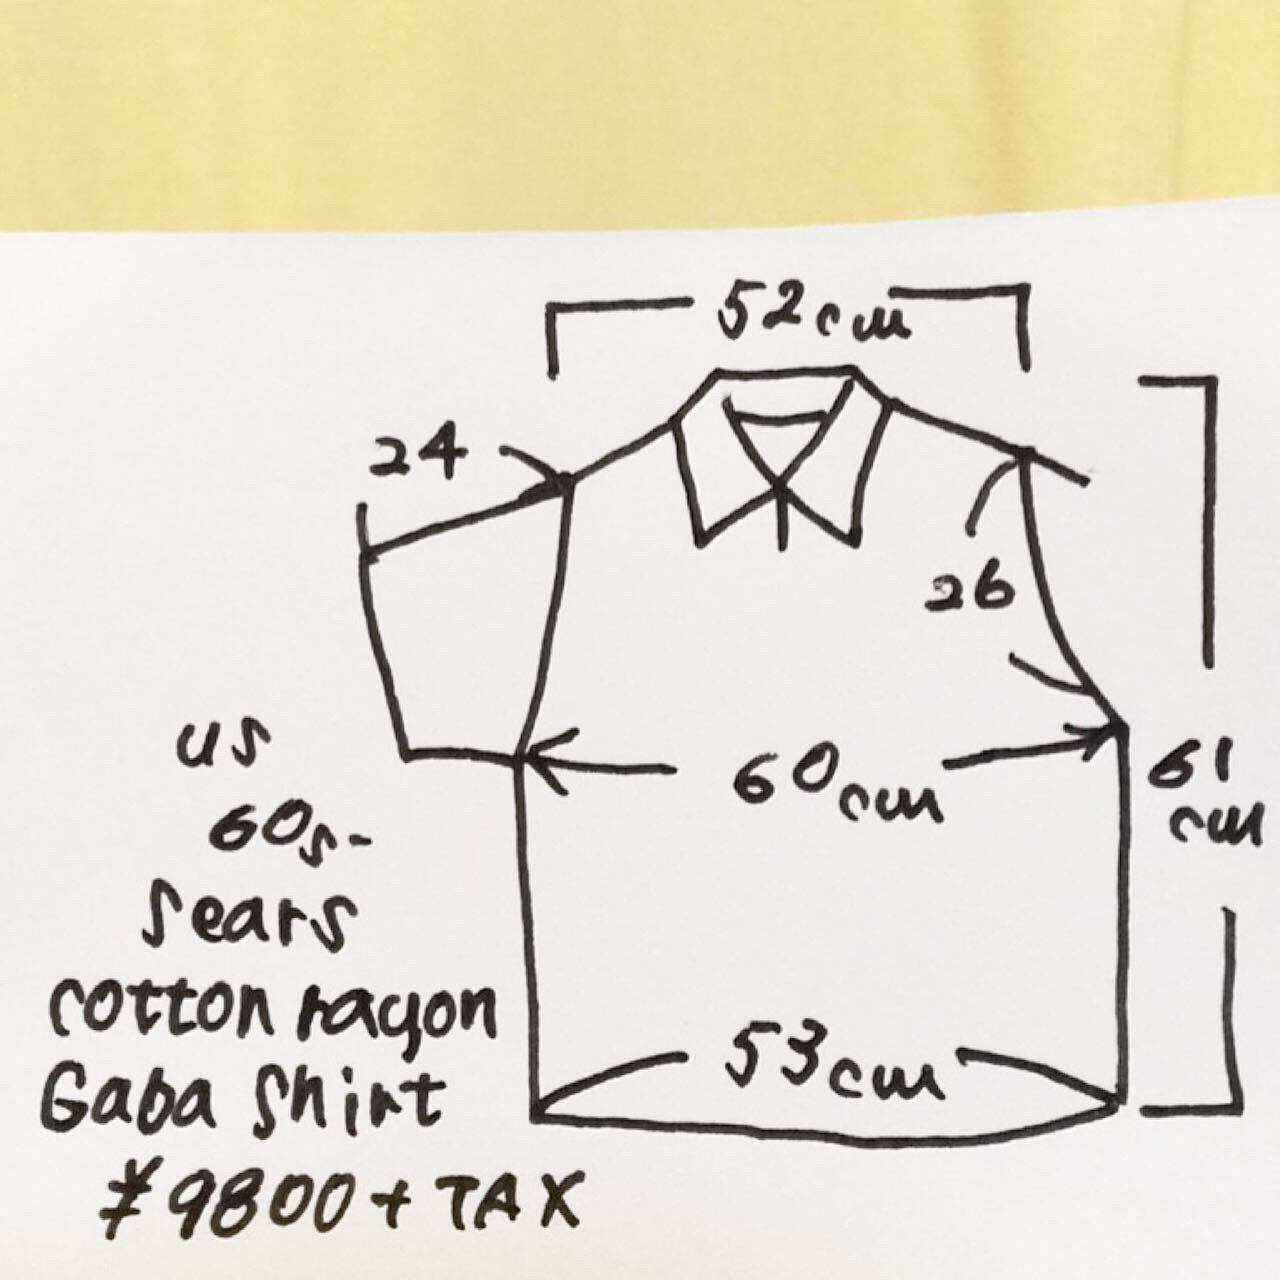 52cm
24
26
60cm
61
cm
53cm
us
60s-
Sears
cotton rayon
Gaba Shirt
¥9800+TAX